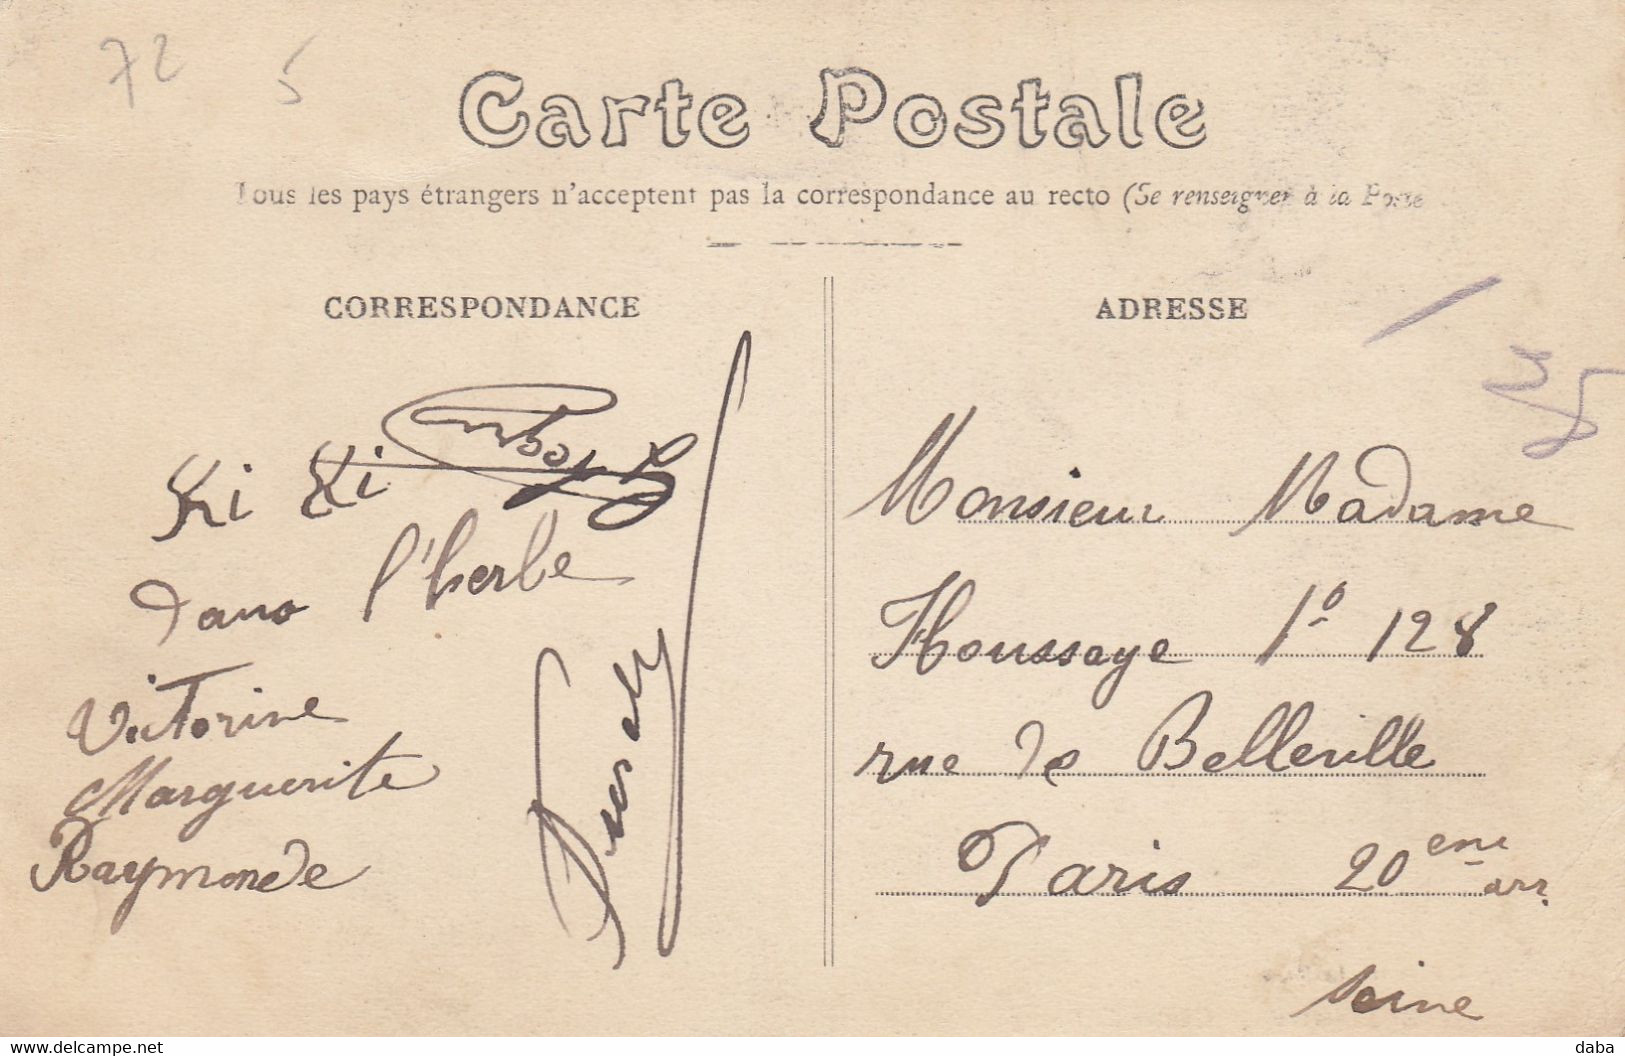 72 5
Carte Postale
Tous les pays étrangers n'acceptent pas la correspondance au recto (Se renseigner à la Poste
CORRESPONDANCE
Ki Ki
dans l'herbe
Victorine
Marguerite
Raymonde
ADRESSE
Monsieur Madame
Houssaye 1º 128
rue de Belleville
Paris 20eme arr.
Seine
35
delcampe.net
daba